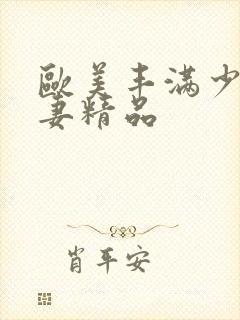 歐美丰滿少
妻精品
肖平安